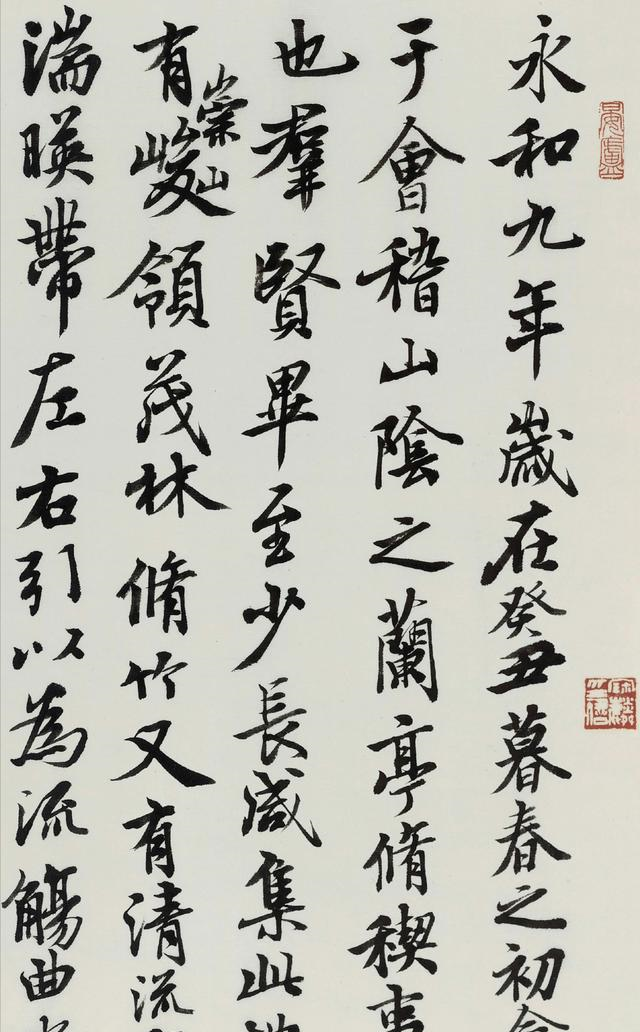 永和九年歲在癸丑暮春之初
于會稽山陰之蘭亭脩稧事
也羣賢畢至少長咸集此地
有崇山峻領茂林脩竹又有清流
湍暎帶左右引以為流觴曲